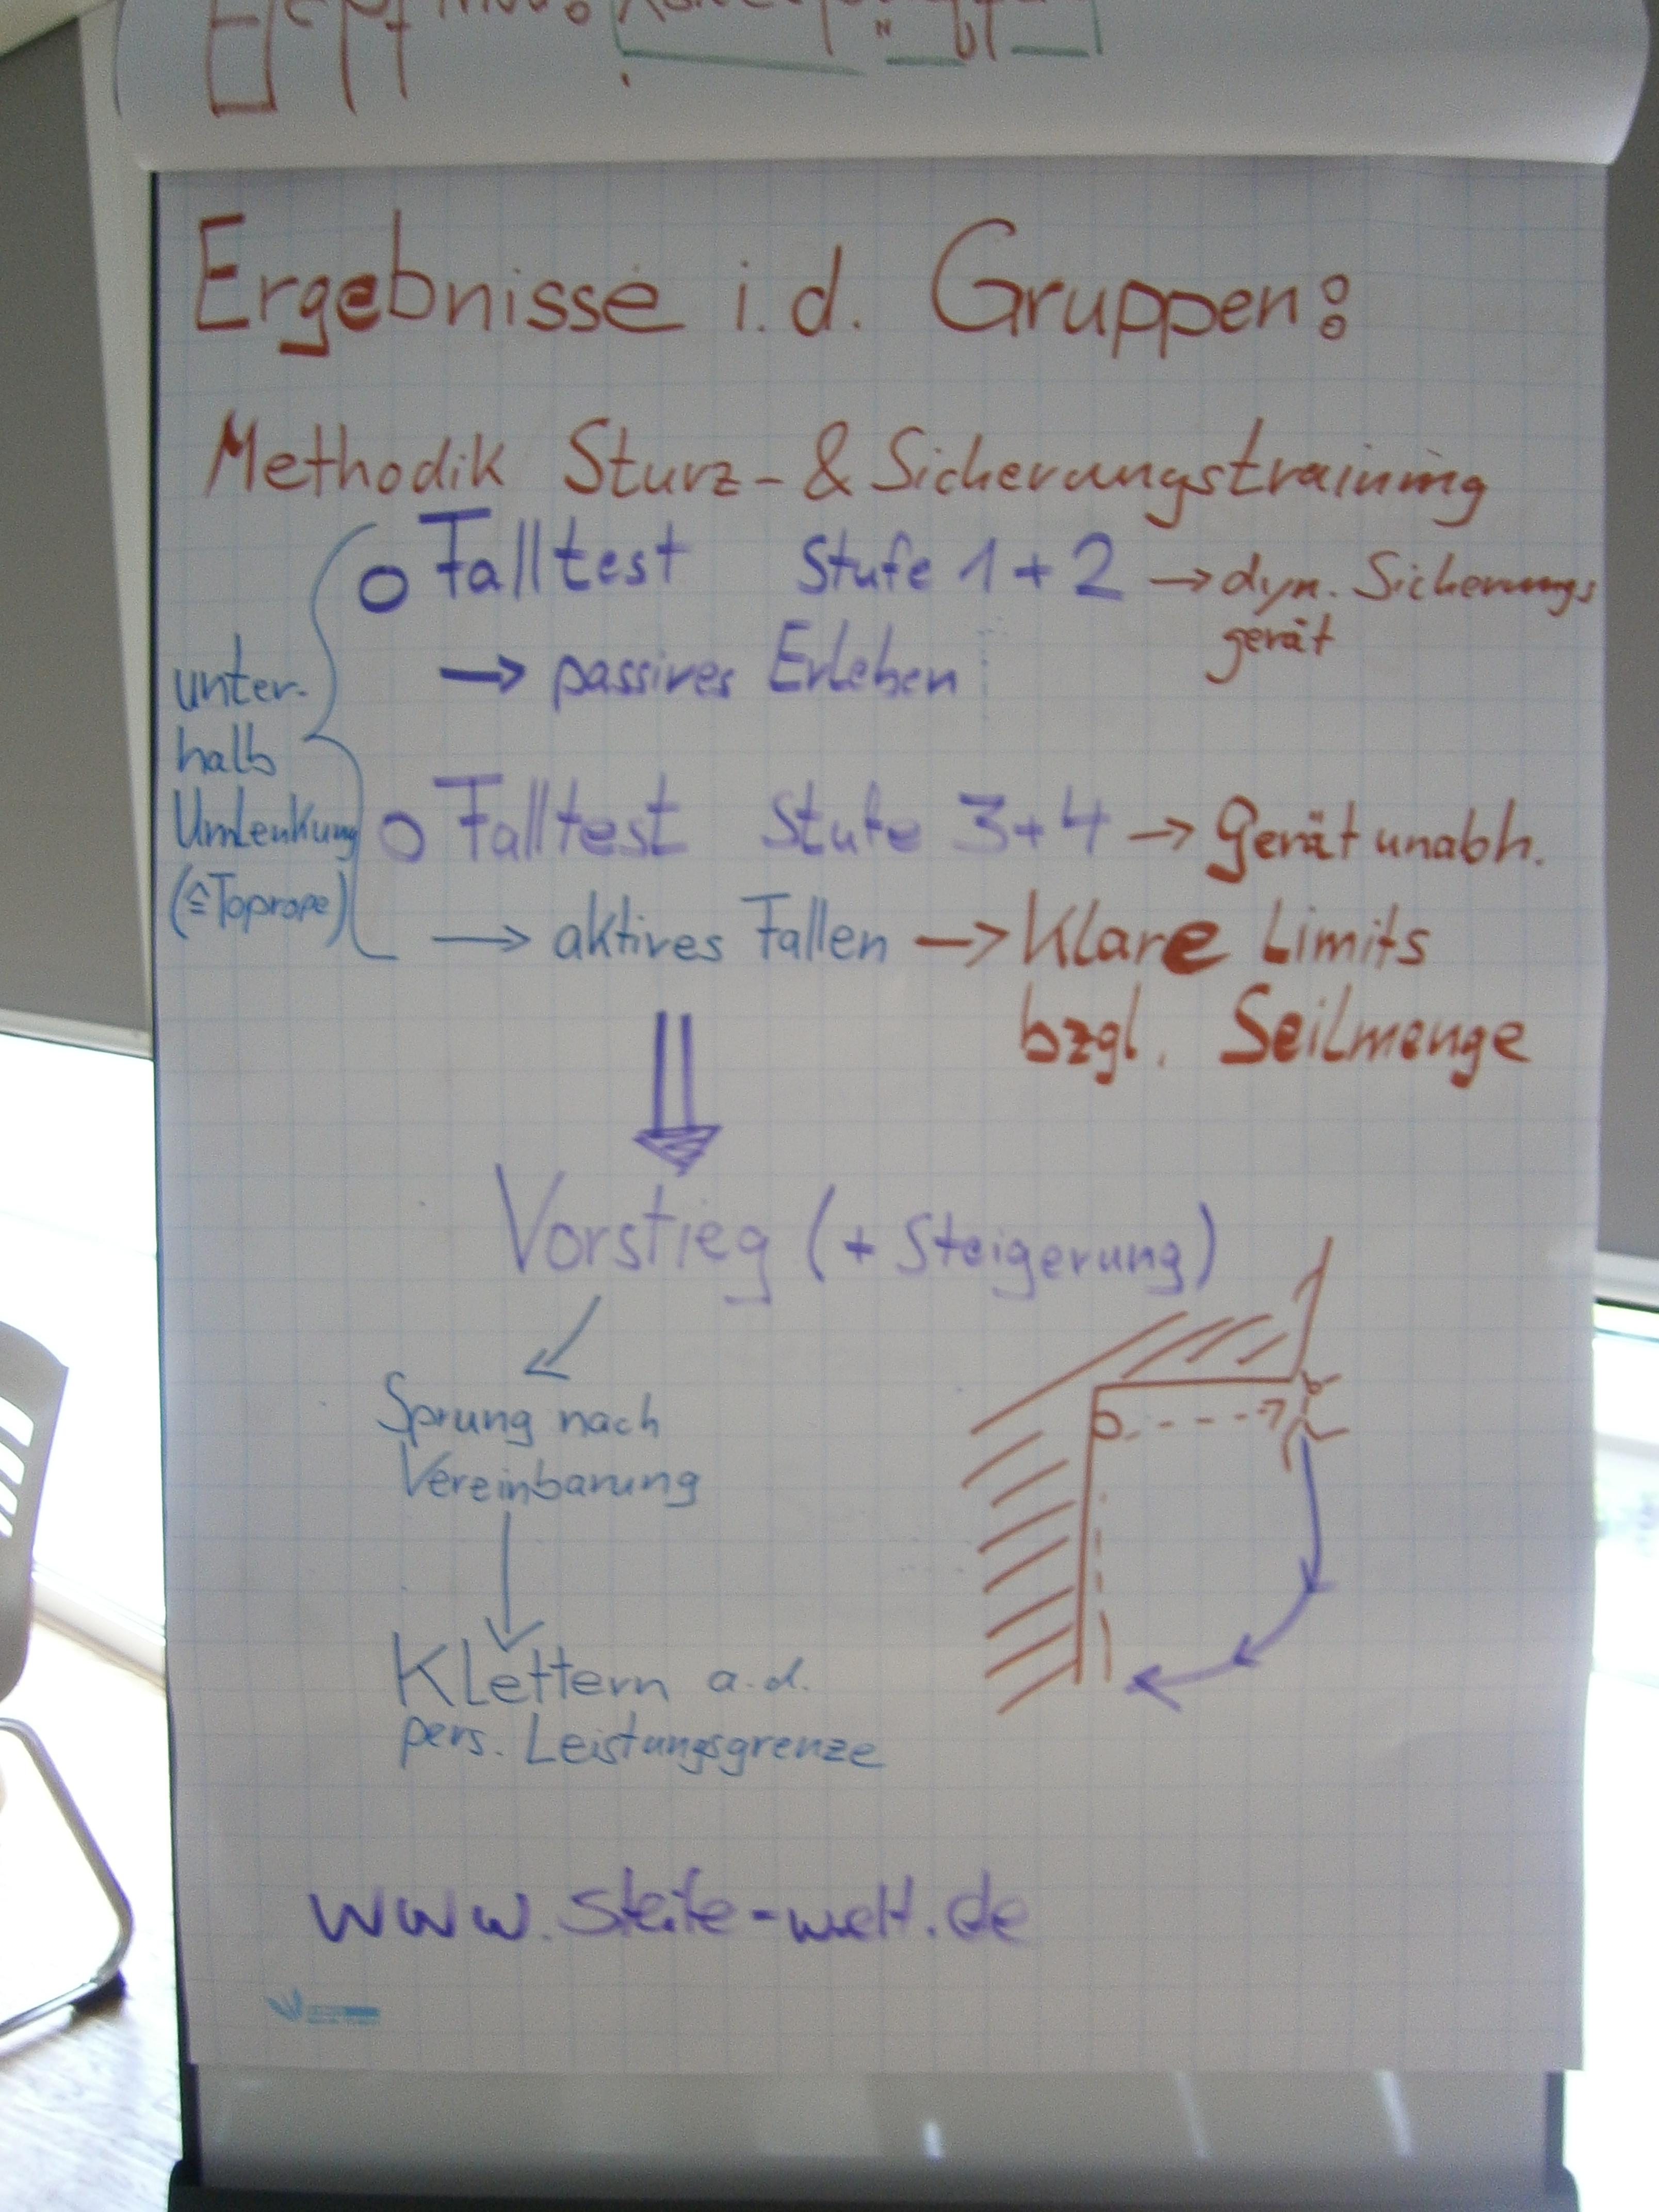 Ergebnisse i.d. Gruppen:
Methodik Sturz- & Sicherungstraining
o Falltest Stufe 1+2 → dyn. Sicherungs
gerät
→ passives Erleben
unter-
halb
Umlenkung
(≙Toprope)
o Falltest Stufe 3+4 → Gerät unabh.
→ aktives Fallen → Klare Limits
bzgl. Seilmenge
Vorstieg (+ Steigerung)
Sprung nach
Vereinbarung
Klettern a.d.
pers. Leistungsgrenze
www.steile-welt.de